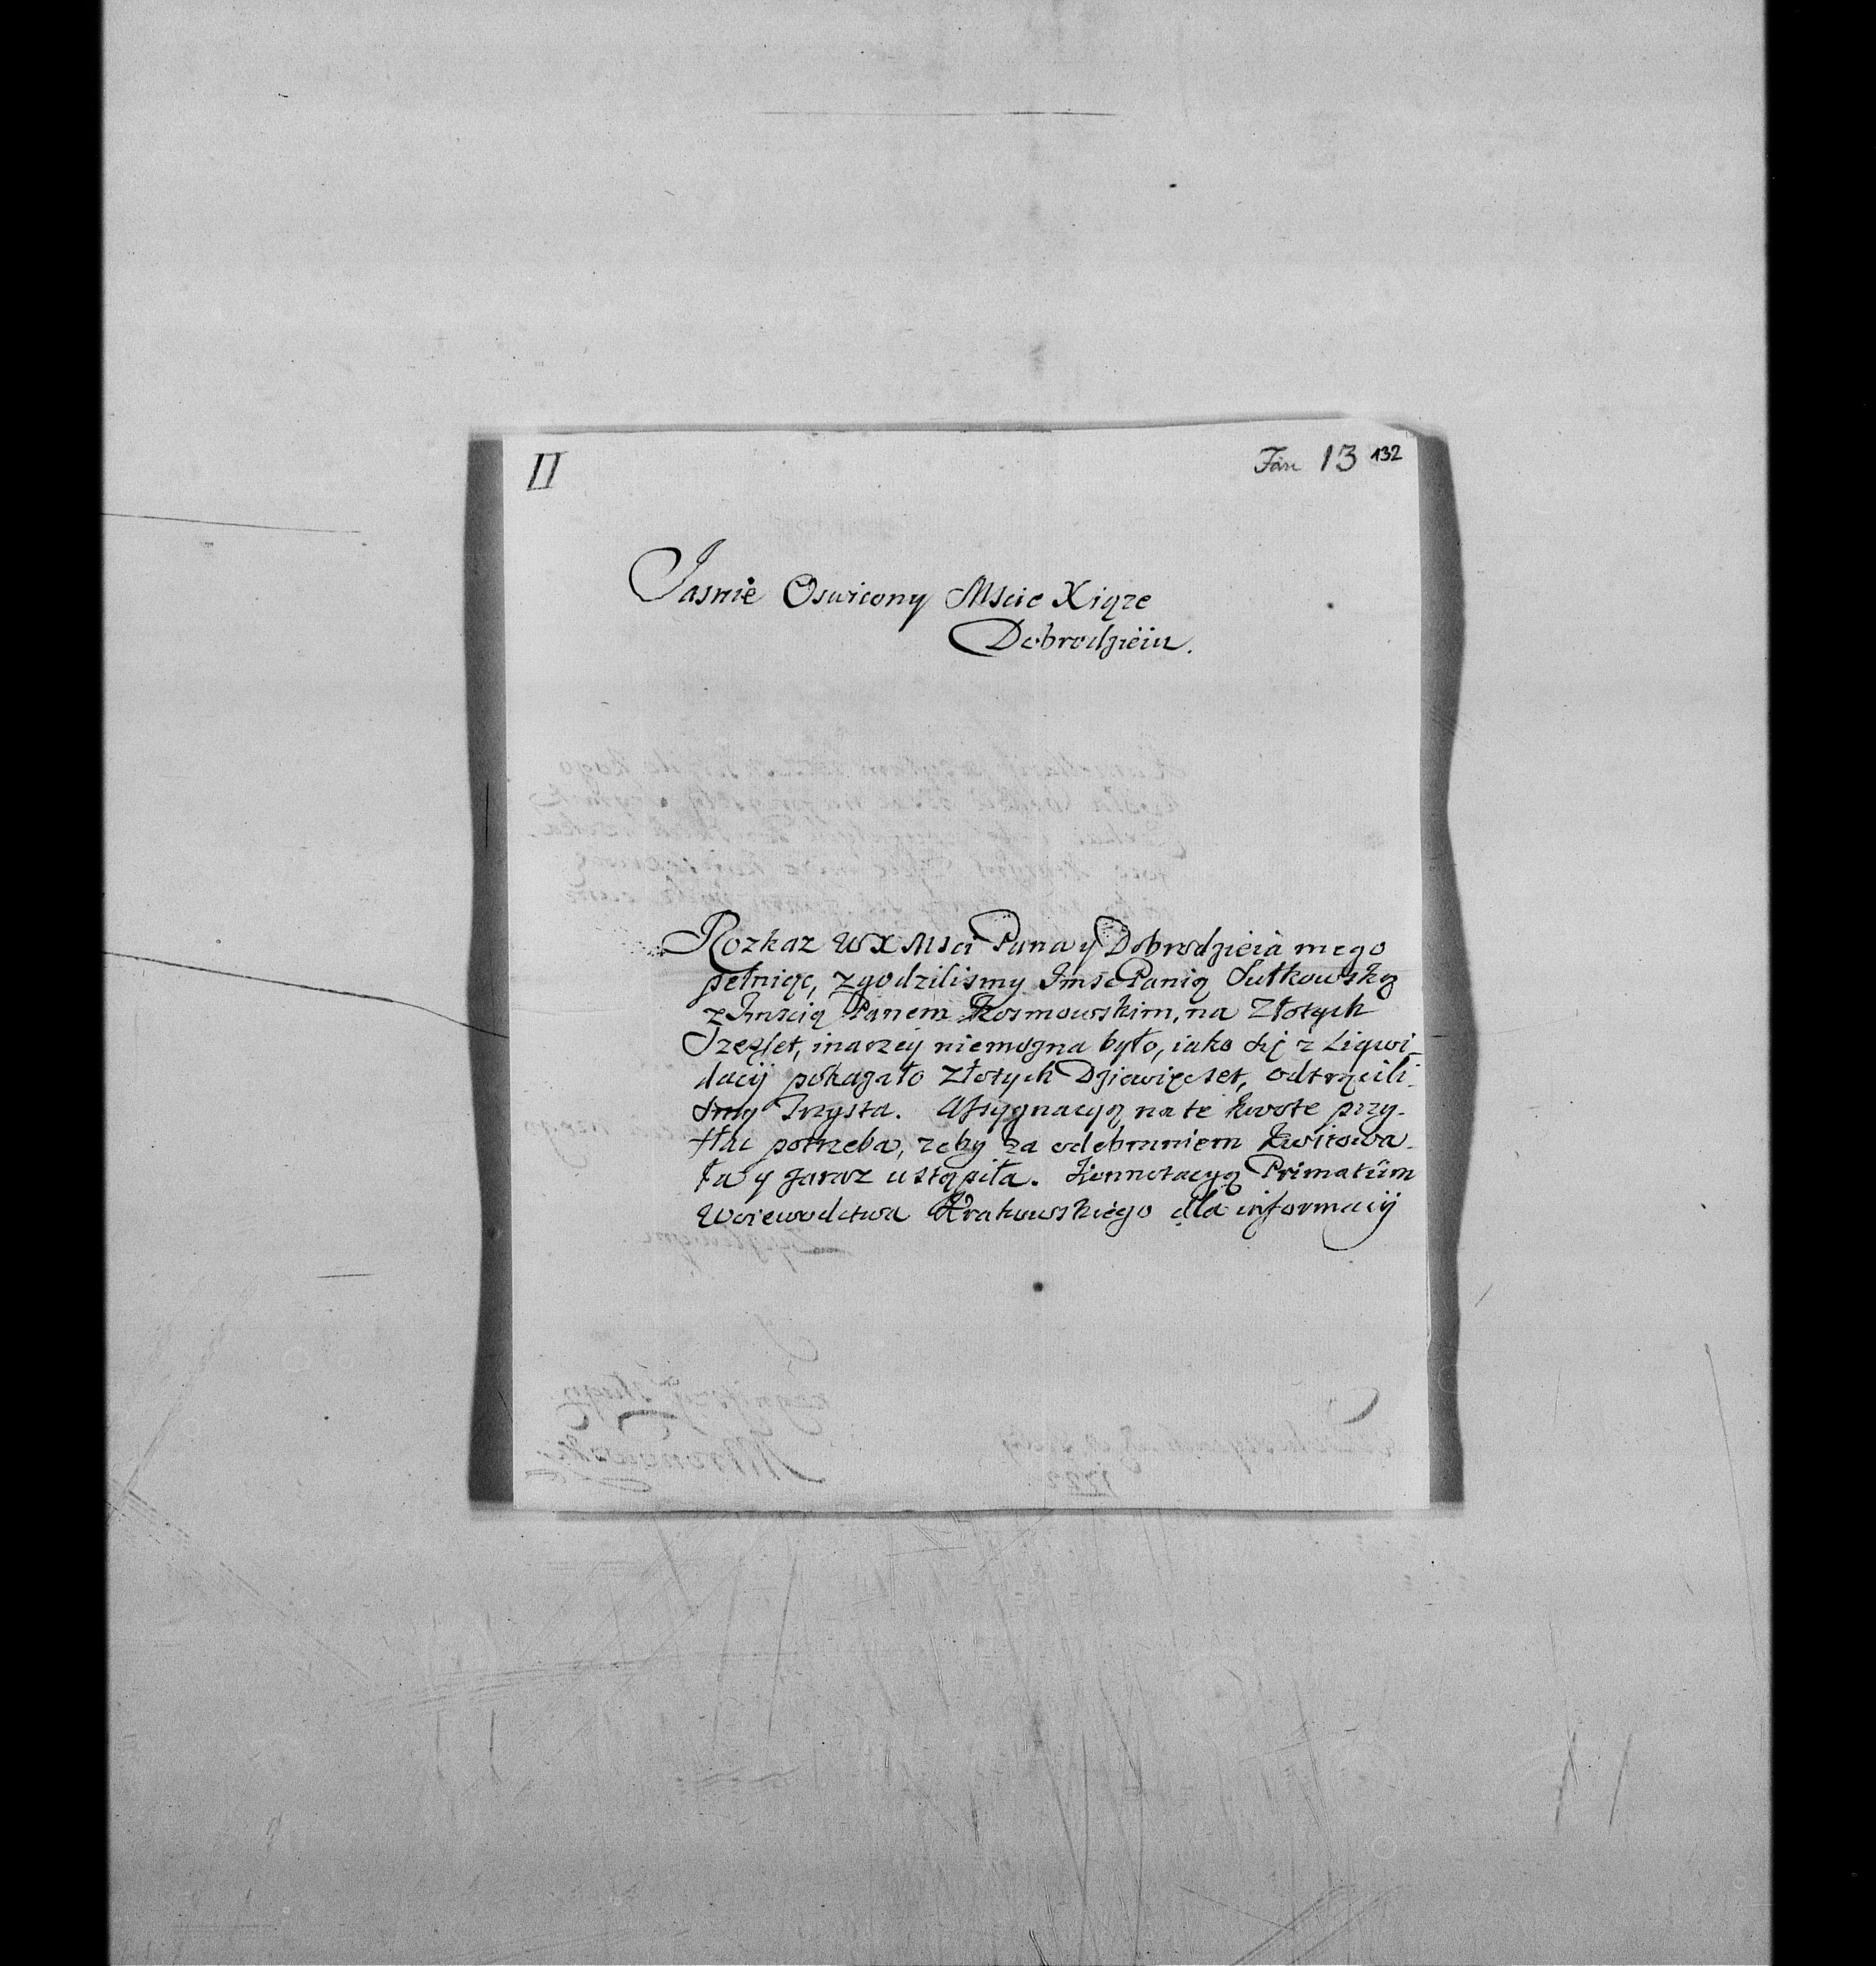 II
Jan 13 132
Jasnie Oswicony Mscie Xiąze
Dobrodzieiu.
Rozkaz WX Msci Pana y Dobrodzieia mego
pełniąc, zgodzilismy Imsc Panią Sutkowską
z Imscią Panem Kosmowskim, na Złotych
Szesset, inarzey niemozna było, iako się z Liqwi-
dacij pokazało Złotych Dziewięcset, odtrącili-
smy Trzysta. Assygnacyą na te kwote przy-
słac potrzeba, zeby za odebraniem kwitowa-
ła y zaraz ustąpiła. Konnotacyą Primatûm
Woiewodctwa Krakowskiego dla informacij